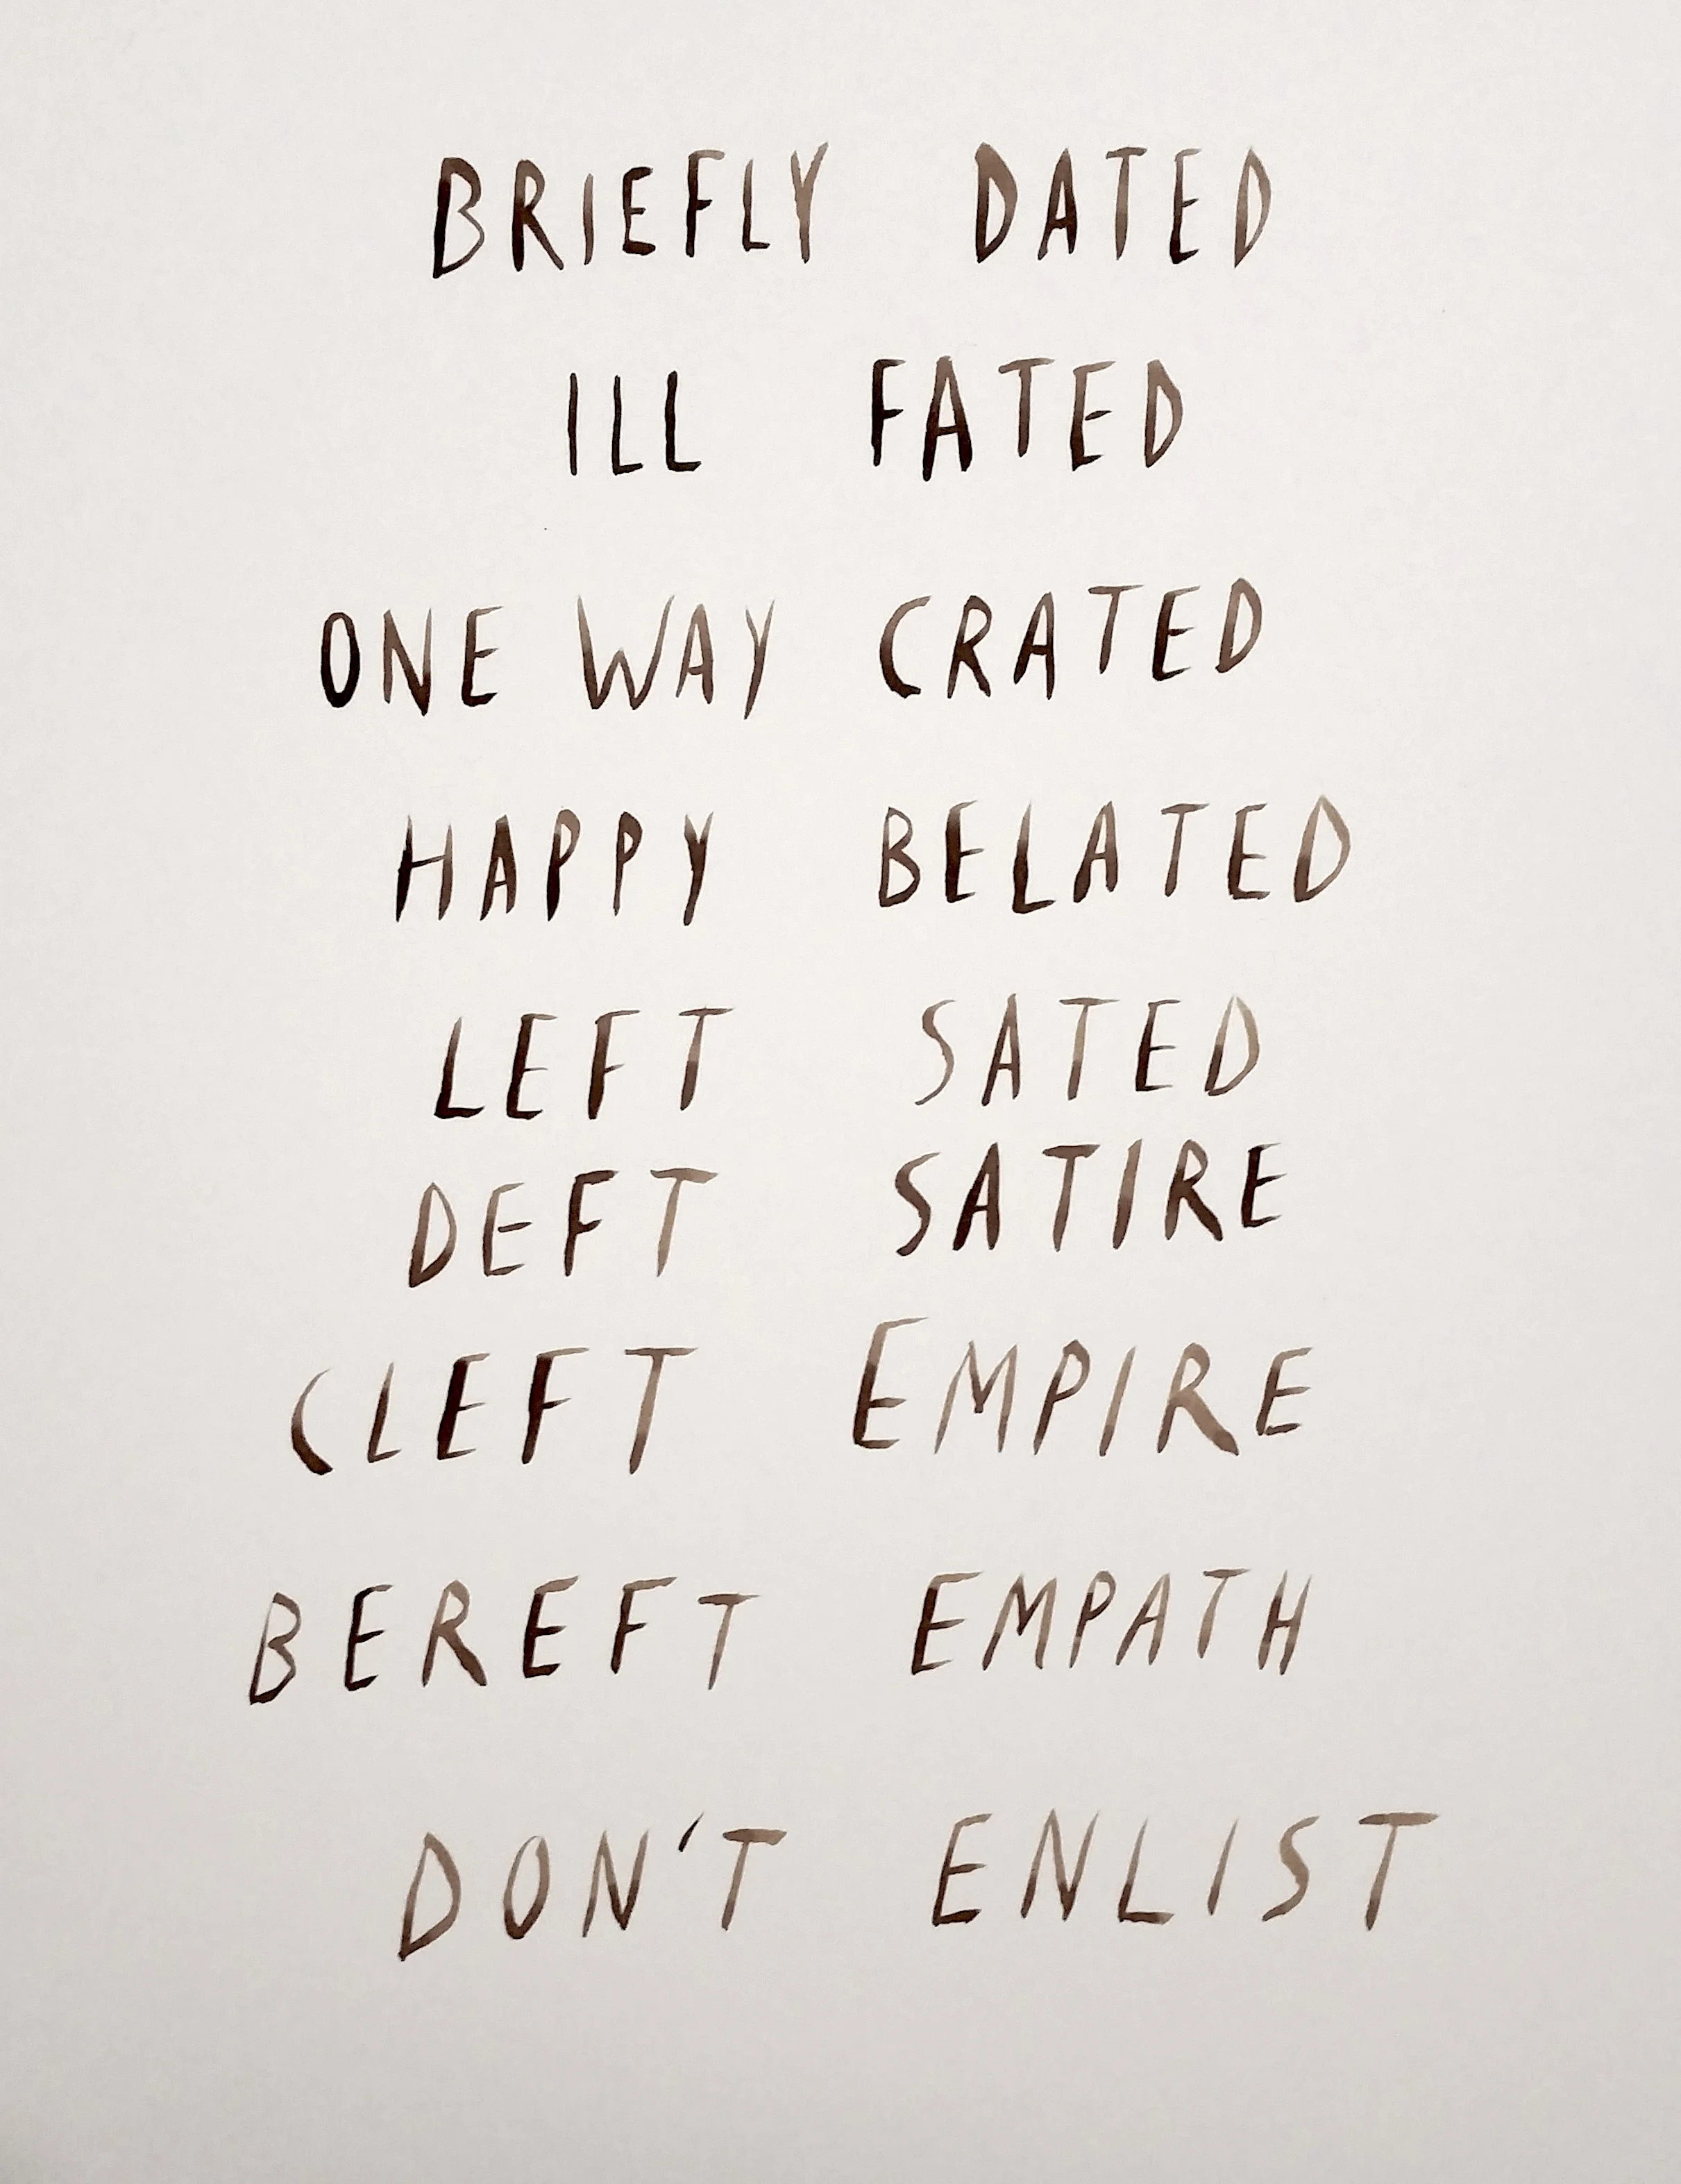 BRIEFLY DATED
ILL FATED
ONE WAY CRATED
HAPPY BELATED
LEFT SATED
DEFT SATIRE
CLEFT EMPIRE
BEREFT EMPATH
DON'T ENLIST